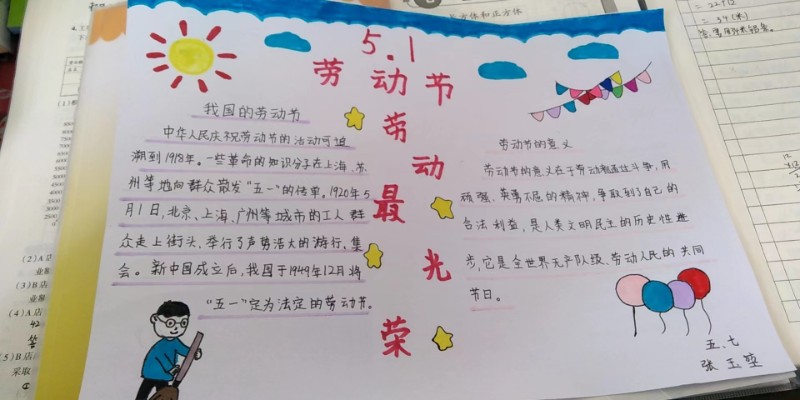 5.1
劳动节
劳动最光荣
我国的劳动节
中华人民庆祝劳动节的活动可追
溯到1918年。一些革命的知识分子在上海、苏
州等地向群众散发"五一"的传单。1920年5
月1日,北京、上海、广州等城市的工人群
众走上街头,举行了声势浩大的游行,集
会。新中国成立后,我国于1949年12月将
"五一"定为法定的劳动节。
劳动节的意义
劳动节的意义在于劳动者通过斗争,用
顽强、英勇不屈的精神,争取到了自己的
合法利益,是人类文明民主的历史性进
步,它是全世界无产队级、劳动人民的共同
节日。
五.七
张玉
(2)A店
(3)B店
(4)A店
(5)B店
采取